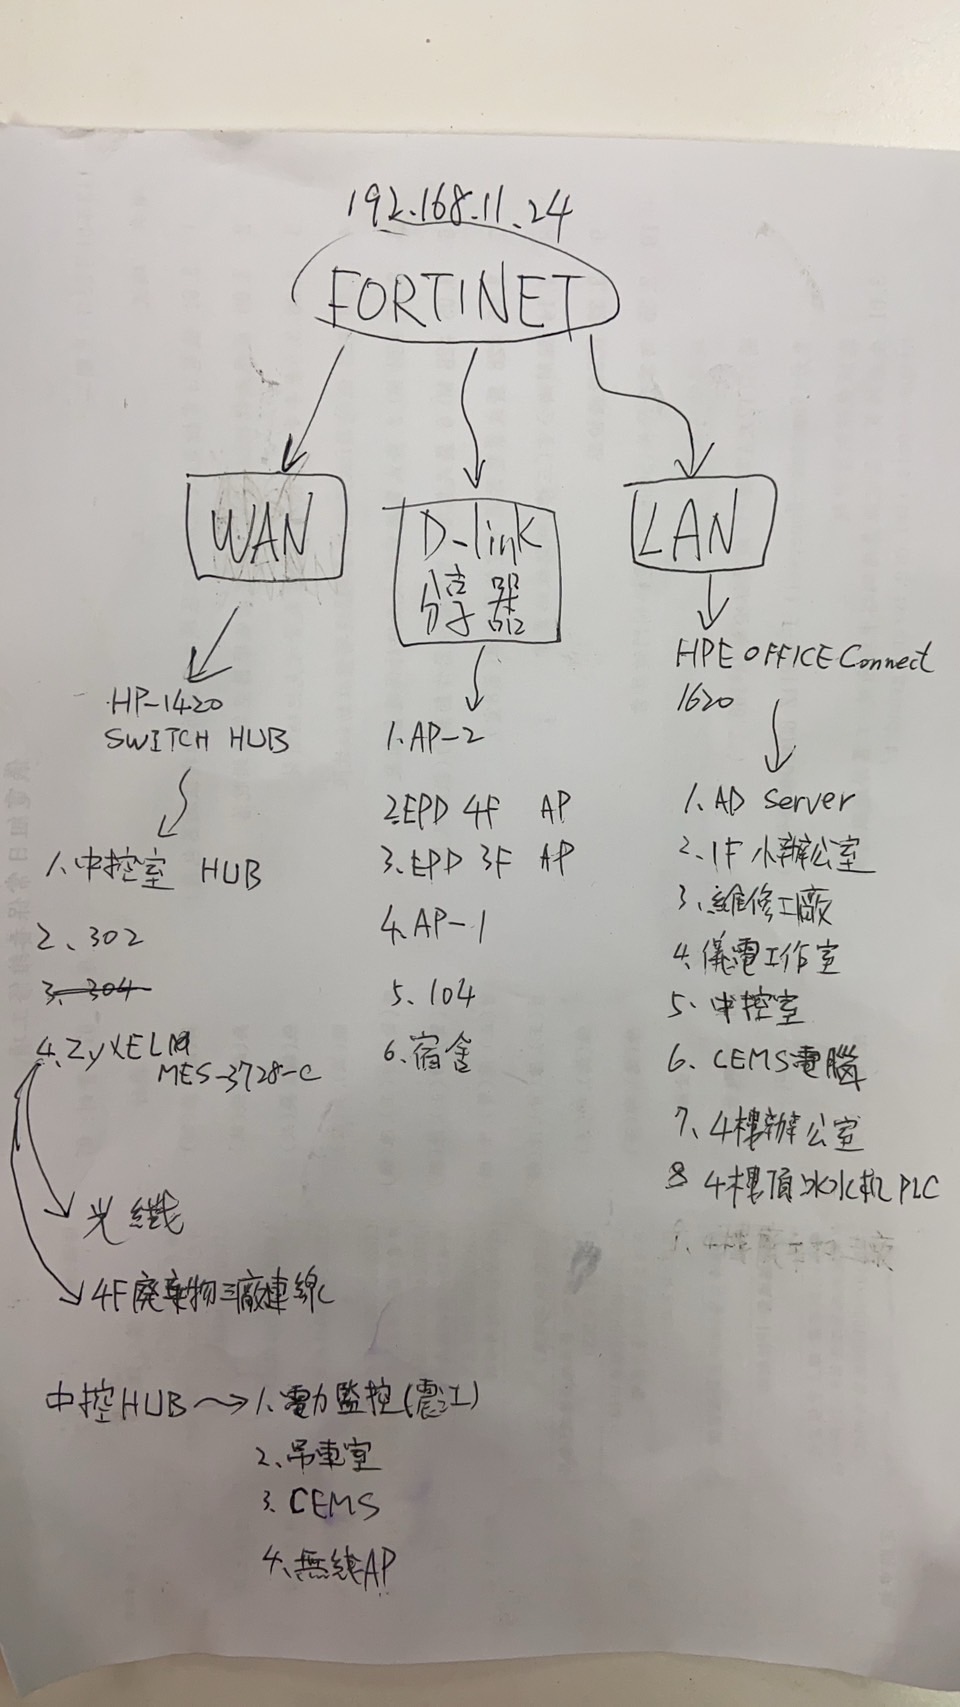 192.168.11.24
FORTINET
WAN
D-link
分享器
LAN
HP-1420
SWITCH HUB
1、中控室 HUB
2、302
3、304
4、ZyXEL
MES-3728-C
光纖
4F廢棄物三廠連線
1、AP-2
2、EPD 4F AP
3、EPD 3F AP
4、AP-1
5、104
6、宿舍
HPE OFFICE Connect
1620
1、AD Server
2、1F小辦公室
3、維修工廠
4、儀電工作室
5、中控室
6、CEMS電腦
7、4樓辦公室
8 4樓頂冰水机PLC
中控HUB → 1、電力監控(震江)
2、吊車室
3、CEMS
4、無線AP